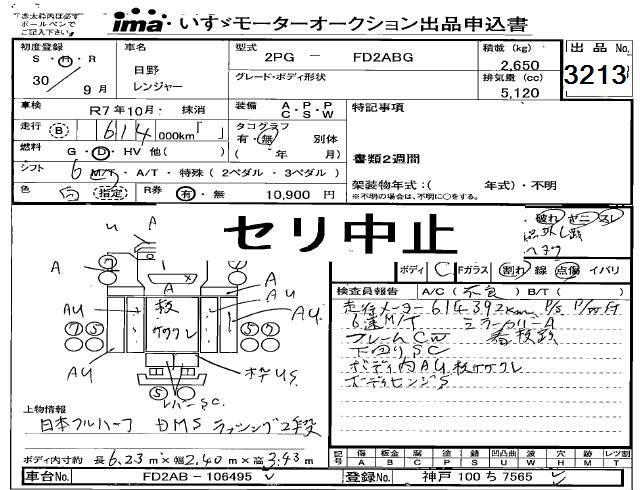 ※太枠内は必ず
ボールペンで
ご記入下さい。
ima いすゞモーターオークション出品申込書
初度登録
S・H・R
30 9月
車名
日野
レンジャー
型式
2PG － FD2ABG
グレード・ボディ形状
積載 (kg)
2,650
排気量 (cc)
5,120
出品No.
3213
車検 R7年10月・ 抹消
装備 A・P・P
C S W
特記事項
走行 B 614 000km「 」
タコグラフ
有・無 別体
( 年 月)
燃料 G・D・HV 他( )
シフト 6 M/T・A/T・特殊(2ペダル・3ペダル)
書類2週間
色 (指定) R券 有・無 10,900 円
架装物年式:( 年式)・不明
※不明の場合は、不明に○をする。
セリ中止
破れ
ボディ C Fガラス 割れ 線 点傷 イバリ
検査員報告 A/C(不良) B/T( )
走行メーター614392km P/S P/W付
6速M/T ミラーカバーA
フレームCW 看板跡
下回りSC
ボディ内AU 板ササクレ
ボディヒンジS
u
A
A
A
A
AU
AU
AU
AU
板
ササクレ
7
7
7
5
5
上物情報
日本フルハーフ
ラッシング2段
ボディ内寸約 長6.23m×幅2.40m×高3.43m
記号 傷 板金 腐 塗 錆 凹凸曲 波 穴 跡 レツ割
A B C P S U W H M T
車台No. FD2AB － 106495
登録No. 神戸 100 ち 7565